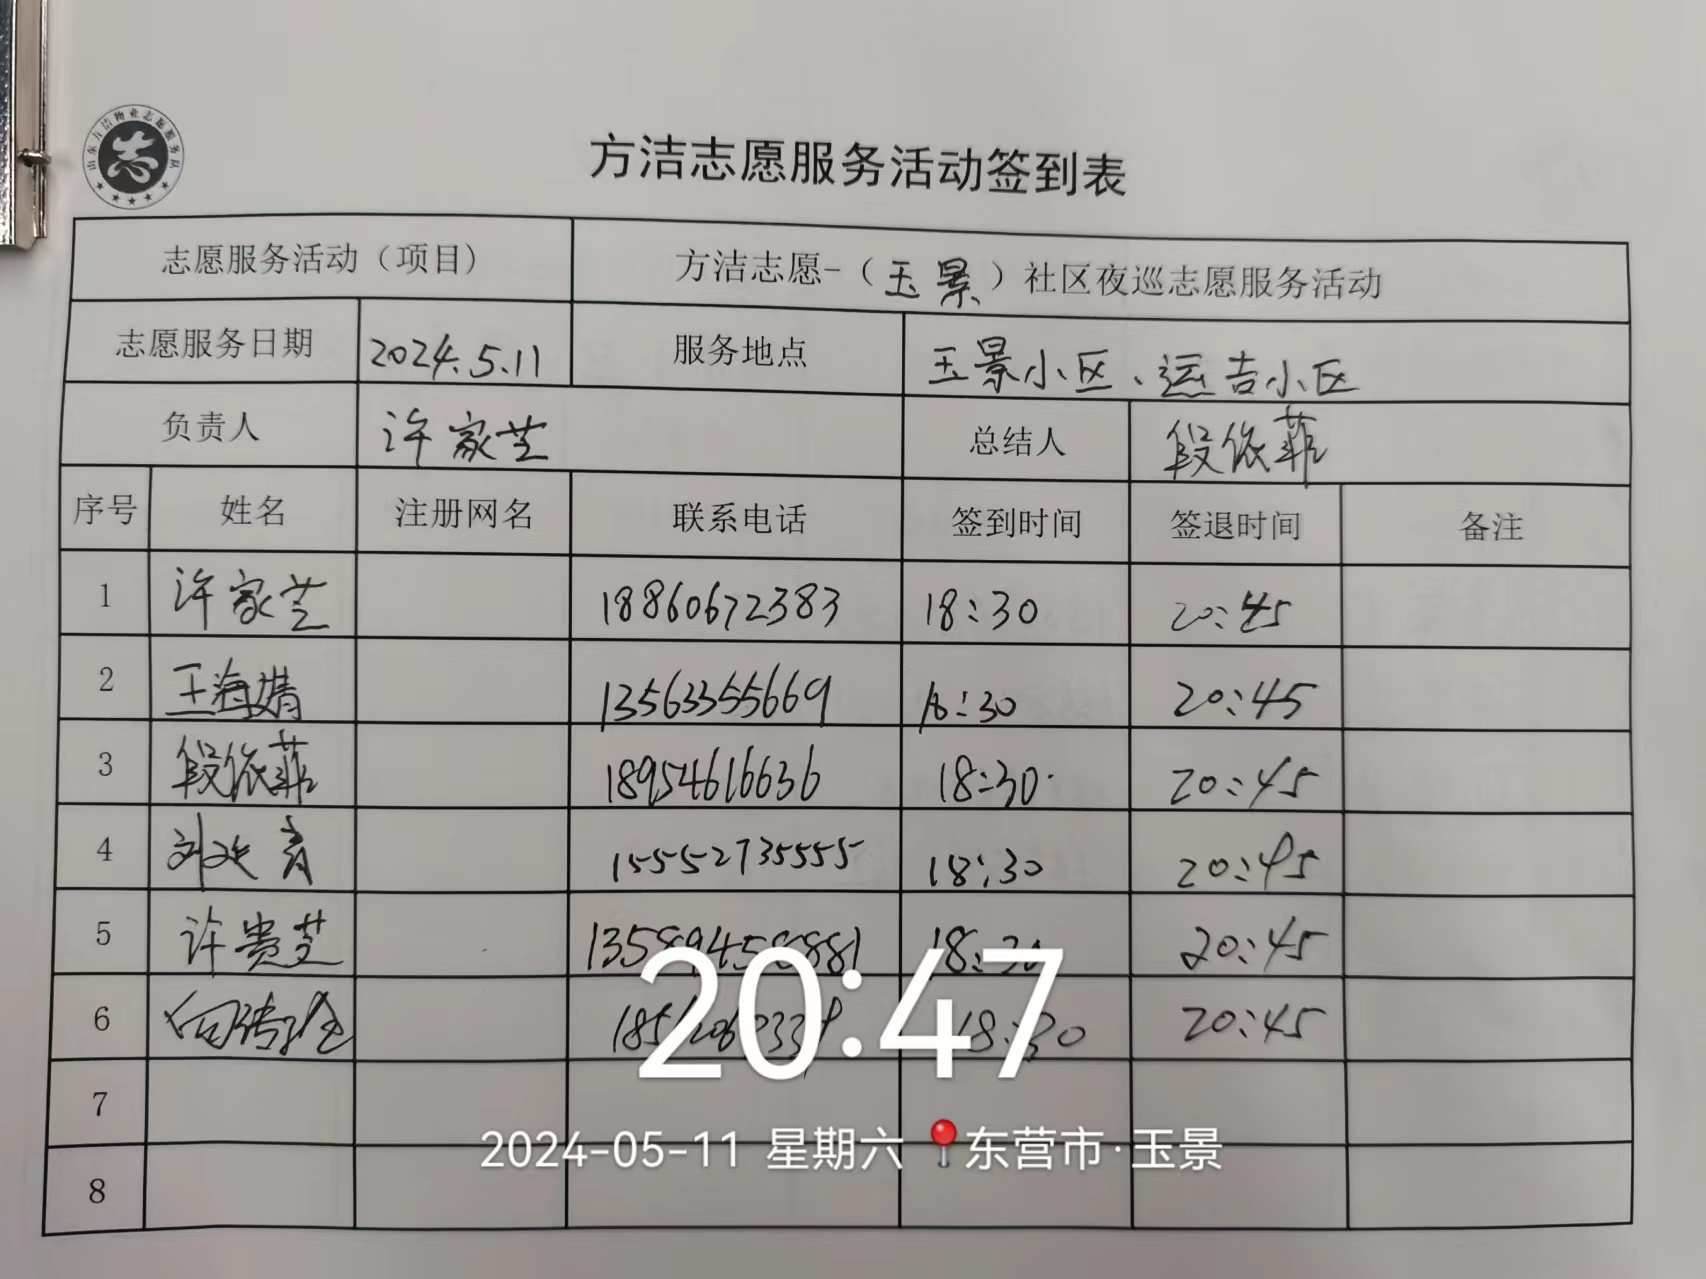 山东方洁物业志愿服务队
志
方洁志愿服务活动签到表
志愿服务活动（项目） 方洁志愿-（玉景）社区夜巡志愿服务活动
志愿服务日期 2024.5.11 服务地点 玉景小区、运吉小区
负责人 许家芝 总结人 段依菲
序号 姓名 注册网名 联系电话 签到时间 签退时间 备注
1 许家芝 18860672383 18:30 20:45
2 王海婧 13563355669 18:30 20:45
3 段依菲 18954616636 18:30 20:45
4 15552735555 18:30 20:45
5 许贵芝 18:30 20:45
6 18:30 20:45
7
8
20:47
2024-05-11 星期六 东营市·玉景